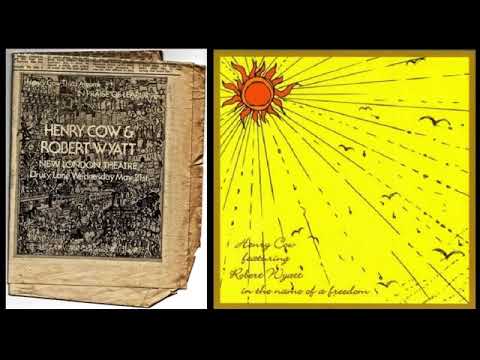 Henry Cow Third Album
PRAISE OF LEARNING
HENRY COW &
ROBERT WYATT
NEW LONDON THEATRE
Drury Lane Wednesday May 21st
Henry Cow
featuring
Robert Wyatt
in the name of a freedom